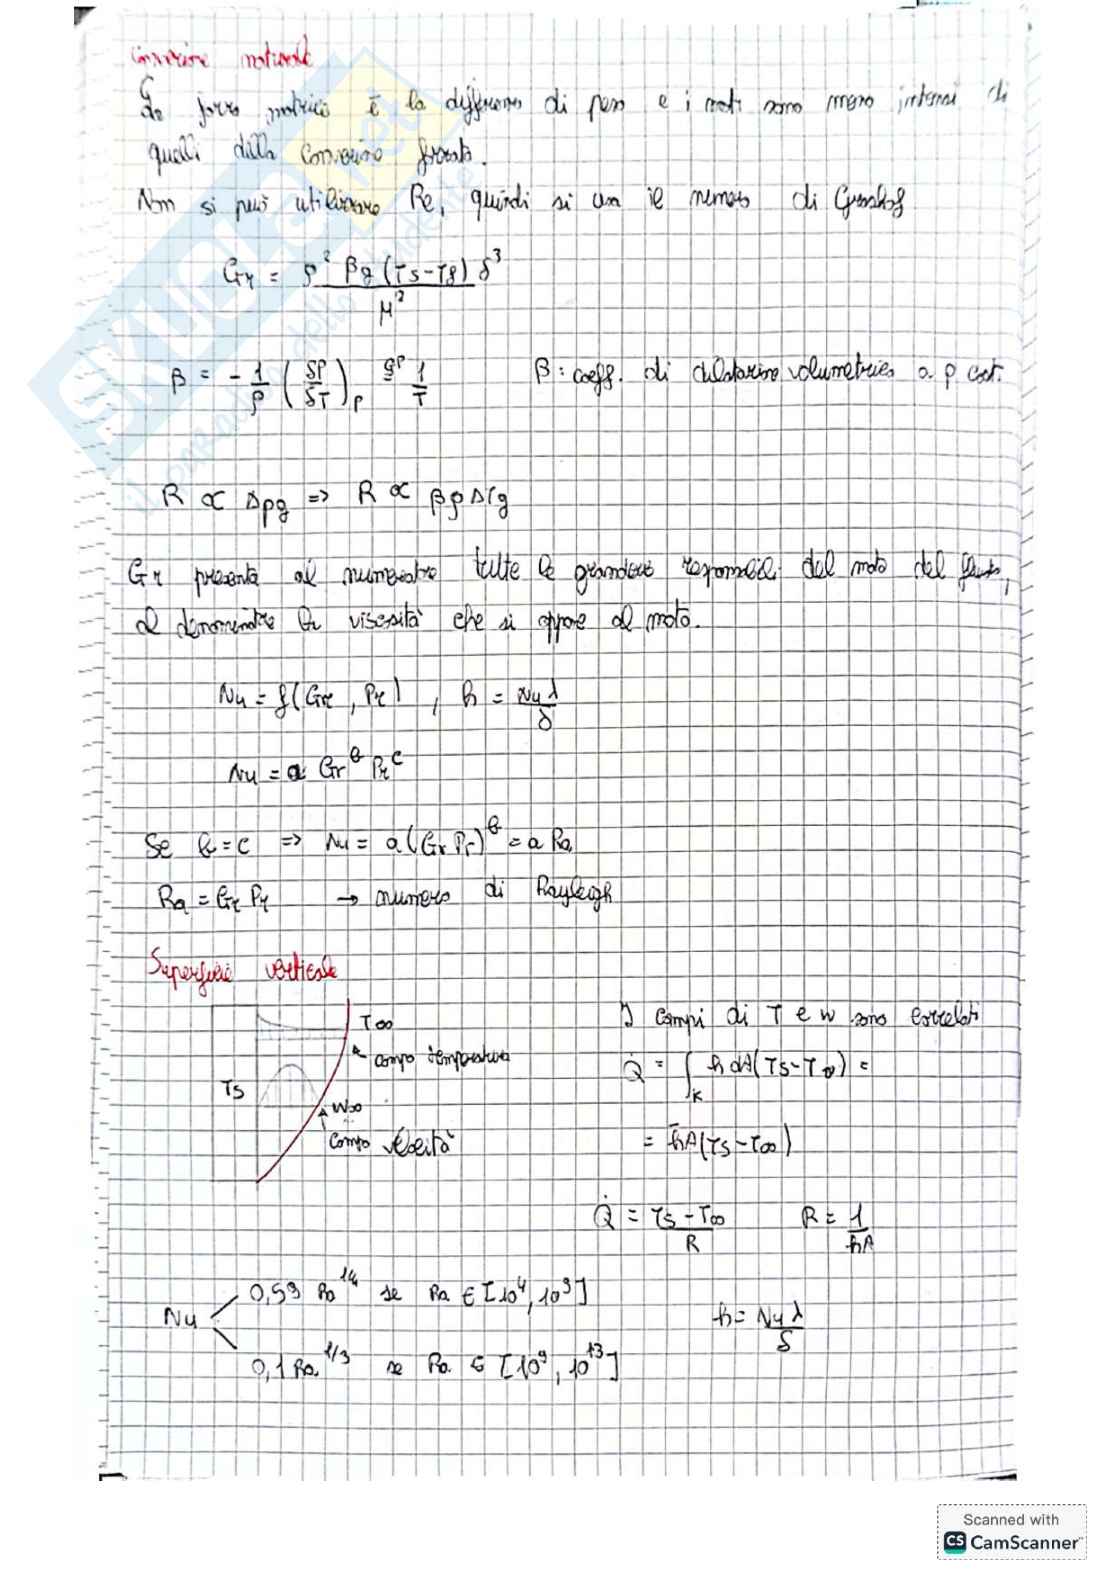 Convezione naturale
La forza motrice è la differenza di peso e i moti sono meno intensi di
quelli della convezione forzata.
Non si può utilizzare Re, quindi si usa il numero di Grashof
Gr = ρ² βg (Ts-Tf) δ³ / μ²
β = - 1/ρ (δρ/δT)p gp= 1/T    β: coeff. di dilatazione volumetrica a p cost.
R ∝ Δρg => R ∝ βρΔTg
Gr presenta al numeratore tutte le grandezze responsabili del moto del fluido,
al denominatore la viscosità che si oppone al moto.
Nu = f(Gr, Pr) , h = Nu λ / δ
Nu = a Gr^b Pr^c
Se b=c => Nu = a(Gr Pr)^b = a Ra
Ra = Gr Pr → numero di Rayleigh
Superficie verticale
T∞
campo temperatura
Ts
W∞
Campo velocità
I campi di T e w sono correlati
Q̇ = ∫ h dA(Ts-T∞) =
= h̄A(Ts-T∞)
Q̇ = Ts - T∞ / R    R = 1 / h̄A
Nu
0,59 Ra^1/4 se Ra ∈ [10⁴, 10⁹]
0,1 Ra^1/3 se Ra ∈ [10⁹, 10¹³]
h = Nu λ / δ
SKUOLA.net
il paradiso dello studente
Scanned with
CS CamScanner